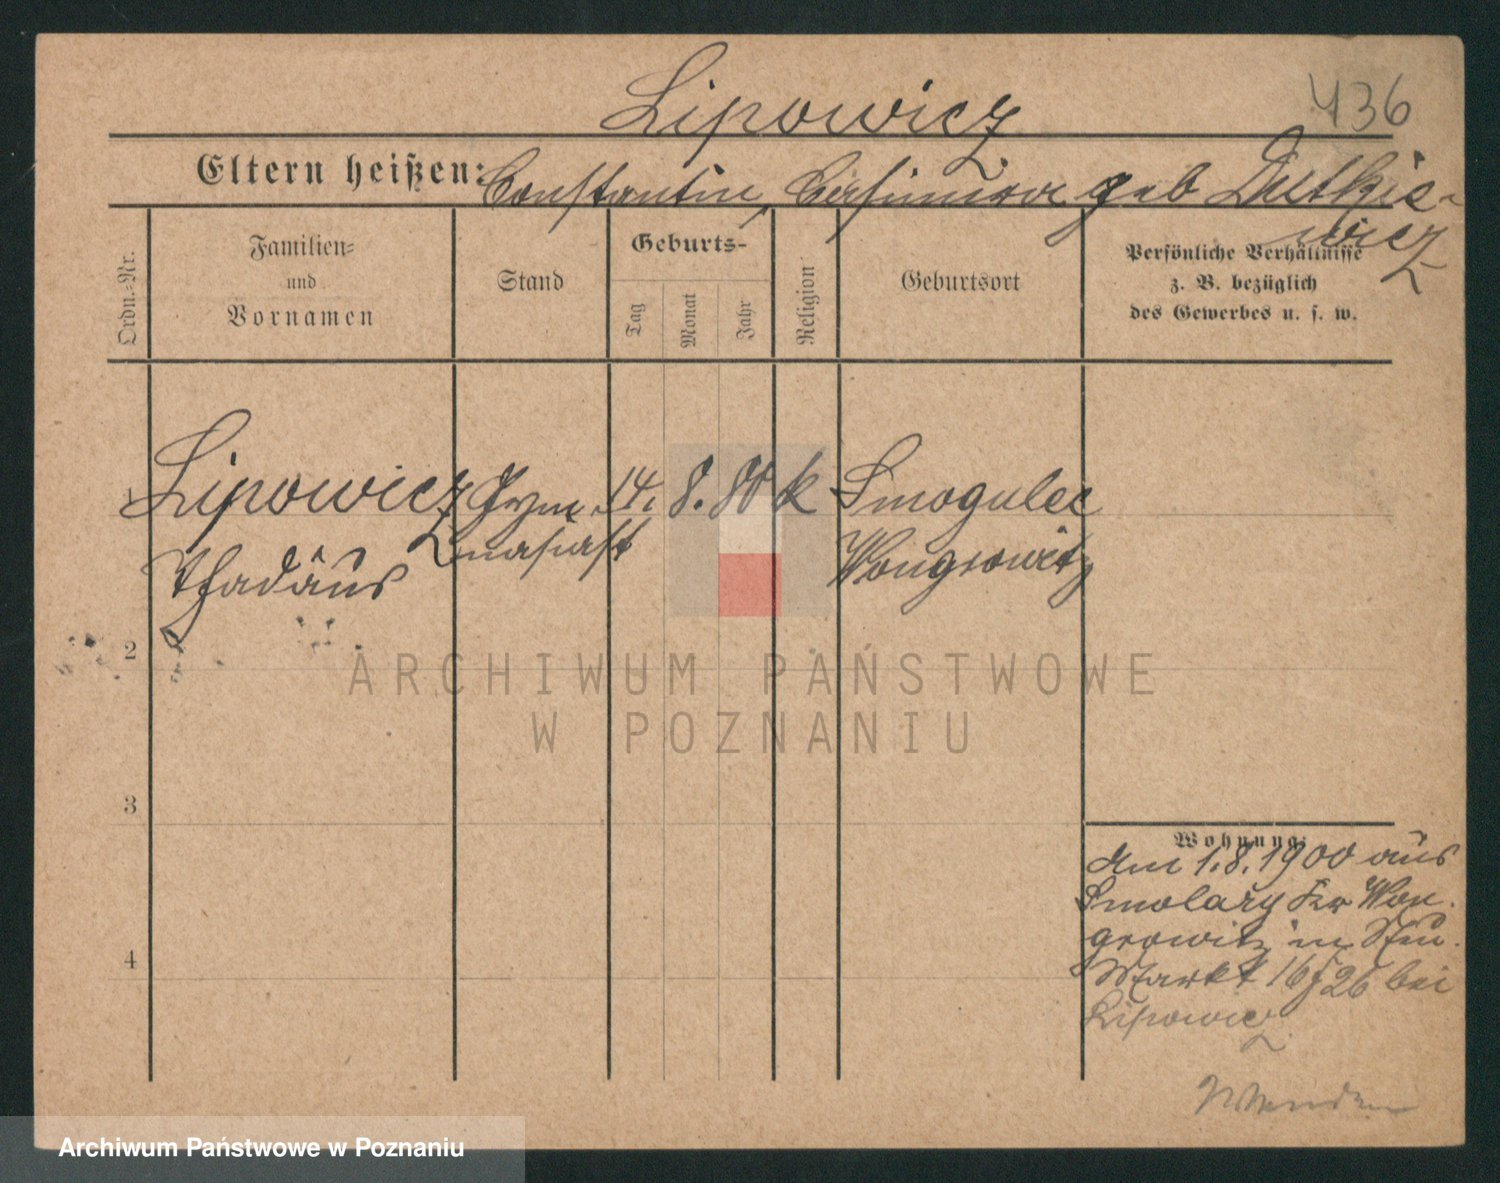 Lipowicz
436
Eltern heißen: Constantin, Casimira geb Dutkie-
wicz
Ordn.-Nr.
Familien-
und
Vornamen
Stand
Geburts-
Tag
Monat
Jahr
Religion
Geburtsort
Persönliche Verhältnisse
z. B. bezüglich
des Gewerbes u. s. w.
1 Lipowicz Gym- 14. 8. 80 k Smogulec
Thadäus nasiast Wongrowitz
2
3
4
Wohnung:
Am 1.8.1900 aus
Smolary Kr Won-
growitz in Neu-
Markt 16 26 bei
Lipowicz
Wenden
ARCHIWUM PAŃSTWOWE
W POZNANIU
Archiwum Państwowe w Poznaniu